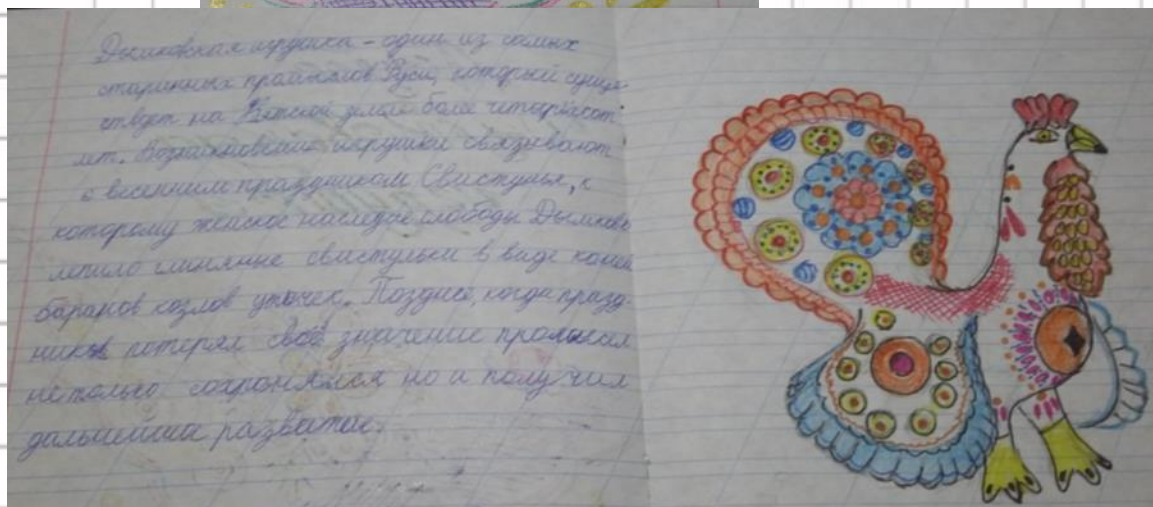 Дымковская игрушка – один из самых
старинных промыслов Руси, который суще-
ствует на Вятской земле более четырёхсот
лет. Возникновение игрушки связывают
с весенним праздником Свистунья, к
которому женское население слободы Дымково
лепило глиняные свистульки в виде коней
баранов козлов уточек. Позднее, когда празд-
ник потерял своё значение промысел
не только сохранился но и получил
дальнейшее развитие.